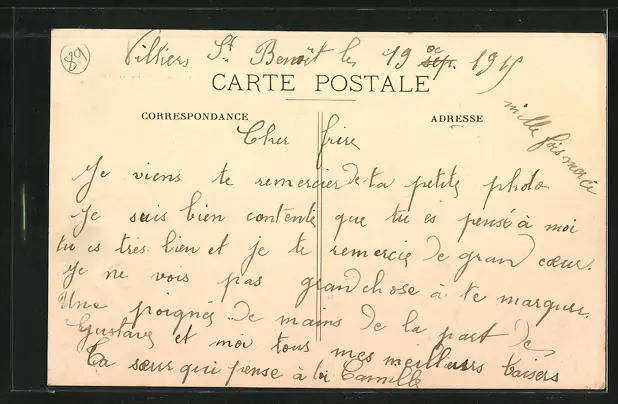 89
Villiers St Benoît le 19 oc sep. 1915
CARTE POSTALE
CORRESPONDANCE
ADRESSE
mille fois merci
Cher frère
Je viens te remercier de ta petite photo
Je suis bien contente que tu es pensé à moi
tu es très bien et je te remercie de grand cœur.
Je ne vois pas grand chose à te marquer.
Une poignée de mains de la part de
Gustave et moi tous mes meilleurs baisers
Ta sœur qui pense à toi Camille